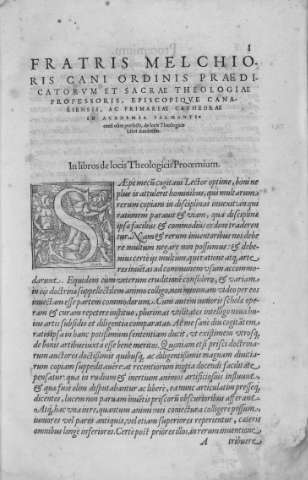 1
FRATRIS MELCHIO-
RIS CANI ORDINIS PRAEDI-
CATORVM ET SACRAE THEOLOGIAE
PROFESSORIS, EPISCOPIQVE CANA-
RIENSIS, AC PRIMARIAE CATHEDRAE
IN ACADEMIA SALMANTI-
censi olim præfecti, de locis Theologicis
In libros de locis Theologicis Procemium.
SÆpe mecũ cogitaui Lector optime, boni ne
plus is attulerit hominibus, qui multarum
rerum copiam in disciplinas inuexit, an qui
rationem parauit & viam, qua disciplinæ
ipsæ facilius & commodius ordine traderen
tur. Nam & rerum inuentoribus nos debe
re multum negare non possumus: & debe-
mus certe his multum, qui ratione atq; arte
res inuẽtas ad communem vsum accommo-
darunt. Equidem cùm veterum eruditionẽ considero, & variam
in oẽs doctrinas suppellectilem animo colligo, non minimam video per eos
inuectam esse partem commodorum. Cum autem iuniorum scholæ
ram & curam repetere instituo, plurimas vtilitates intelligo
ius artis subsidio et diligentia comparatas. At me sanè diu cogitãtem
ratio ipsa in hanc potissimum sententiam ducit, vt existimem vtrosq;
de bonis artibus iuxta esse bene meritos. Quoniam et si priscis doctrina-
rum auctores doctissimis quibusq; ac diligentissimis magnam diuitia-
rum copiam suppeditauere: at recentiorum in docendi facultate
pensatur quia in rudium & inertium animos artificiosius influunt,
& qua fusè olim disputabantur ac libere, ea nunc articulatim
dicentes, lucem non paruam inuẽtis priscorũ obscurioribus afferant.
Atq; hæc vna in re, quantum animi mei coniectura colligere possum,
iuniores vel pares antiquis, vel etiam superiores reperientur, cæteris
omnibus longe inferiores. Certe post priores illos, in rerum inuentione
A tribuere